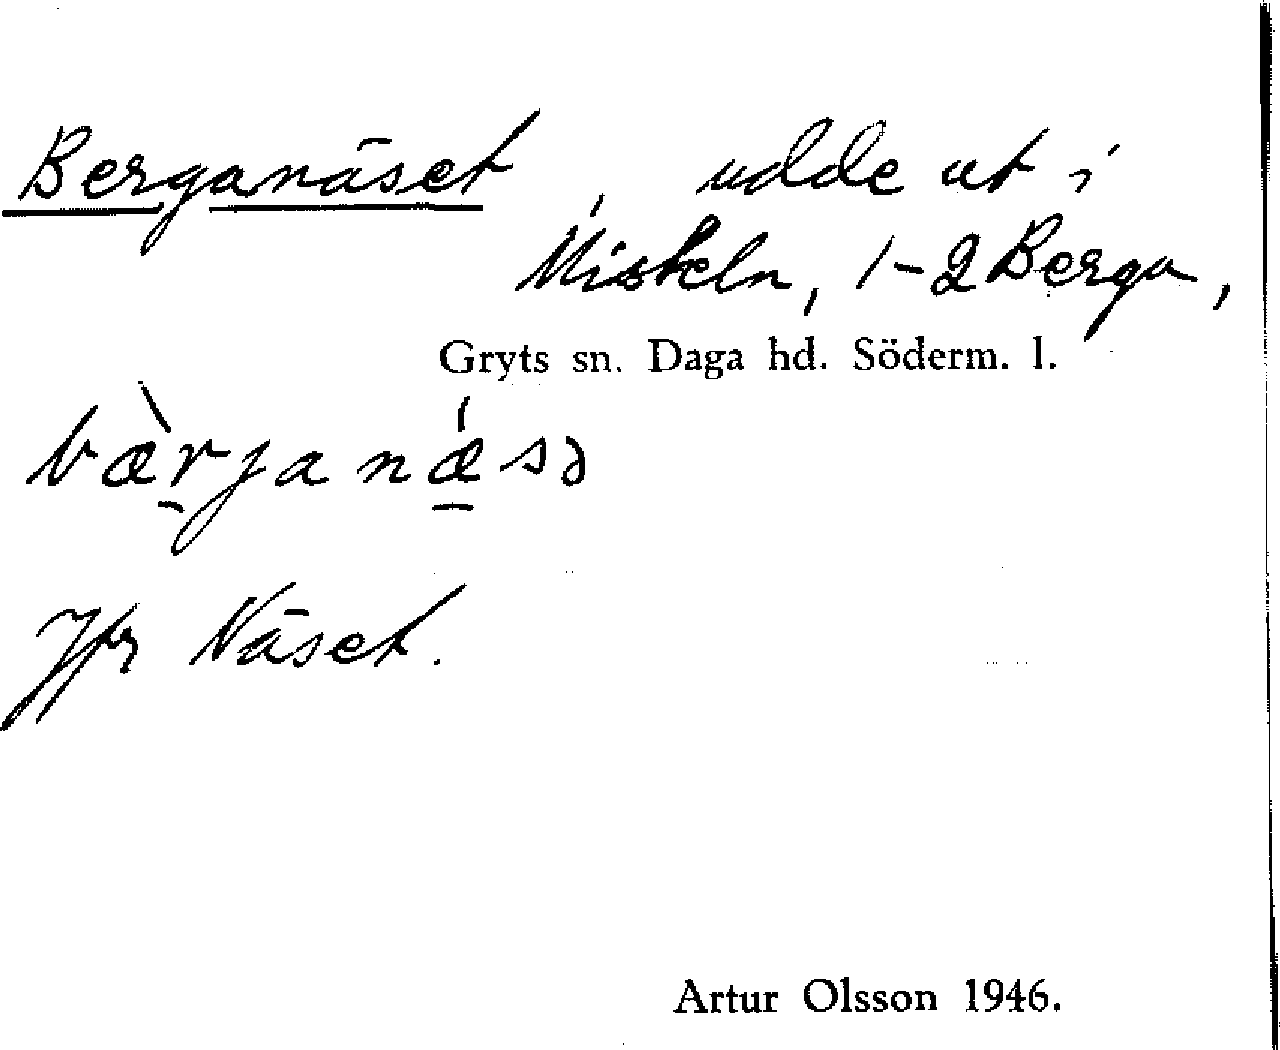 Berganäset, udde ut i
Miskeln, 1-2 Berga,
Gryts sn. Daga hd. Söderm. l.
bæ̀r̠janǽ̠sə
Jfr Näset.
Artur Olsson 1946.